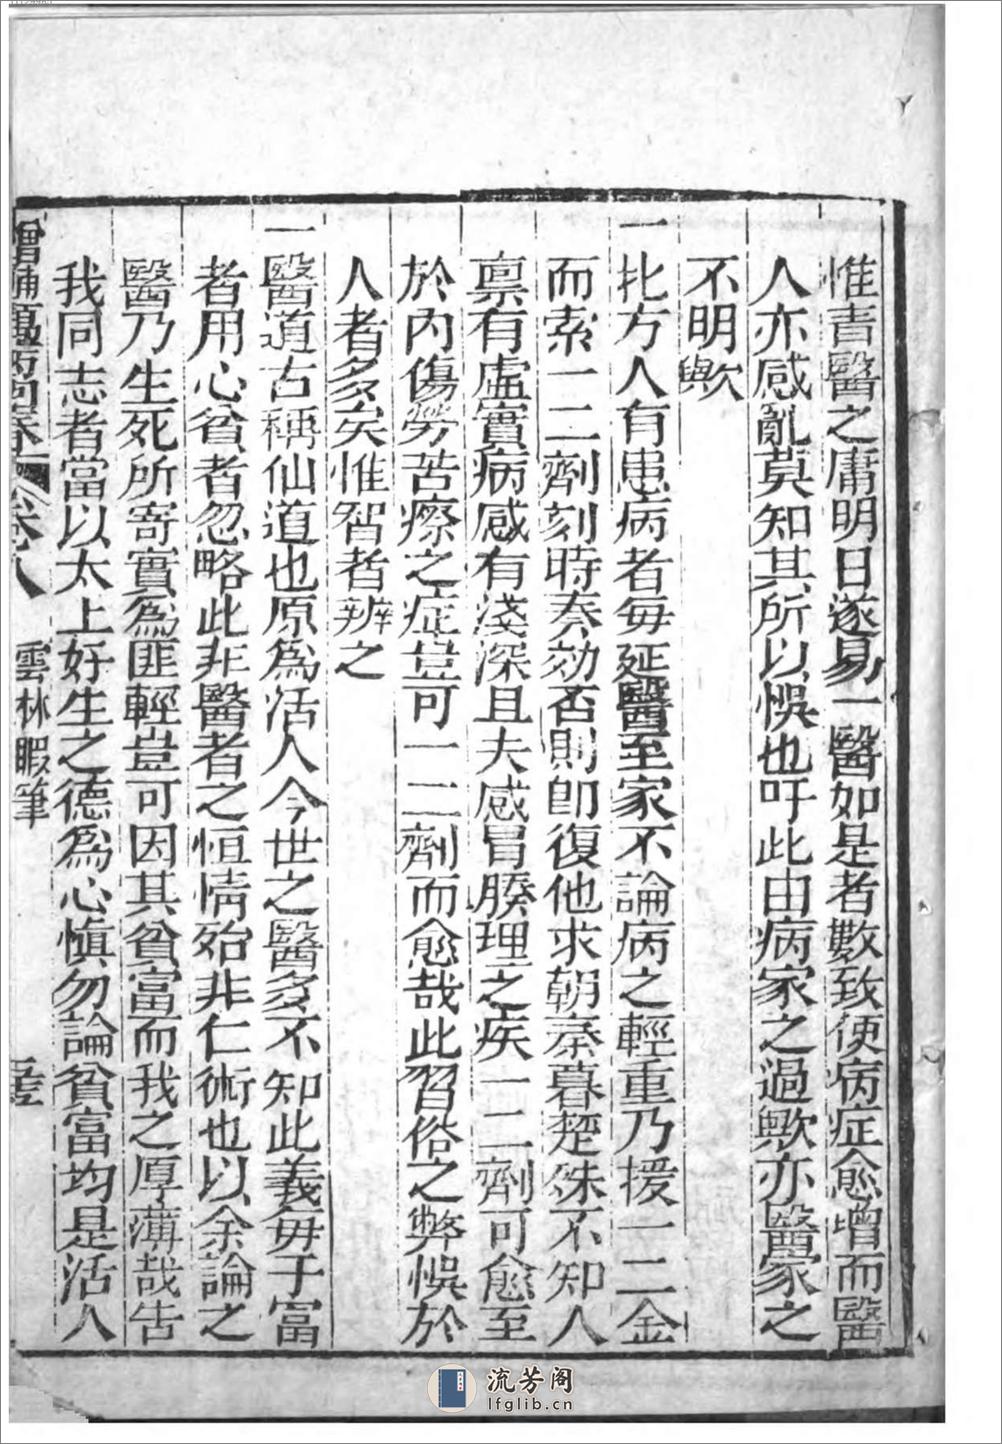 惟責醫之庸明日遂易一醫如是者數致使病症愈增而醫
人亦惑亂莫知其所以悞也吁此由病家之過歟亦醫家之
不明歟
一北方人有患病者每延醫至家不論病之輕重乃援一二金
而索一二劑刻時奏効否則卽復他求朝秦暮楚殊不知人
禀有虛實病感有淺深且夫感冒腠理之疾一二劑可愈至
於內傷勞苦瘵之症豈可一二劑而愈哉此習俗之弊悞於
人者多矣惟智者辨之
一醫道古稱仙道也原爲活人今世之醫多不知此義每于富
者用心貧者忽略此非醫者之恒情殆非仁術也以余論之
醫乃生死所寄實爲匪輕豈可因其貧富而我之厚薄哉告
我同志者當以太上好生之德爲心愼勿論貧富均是活人
增補萬病回春 卷八 雲林暇筆
流芳阁
lfglib.cn